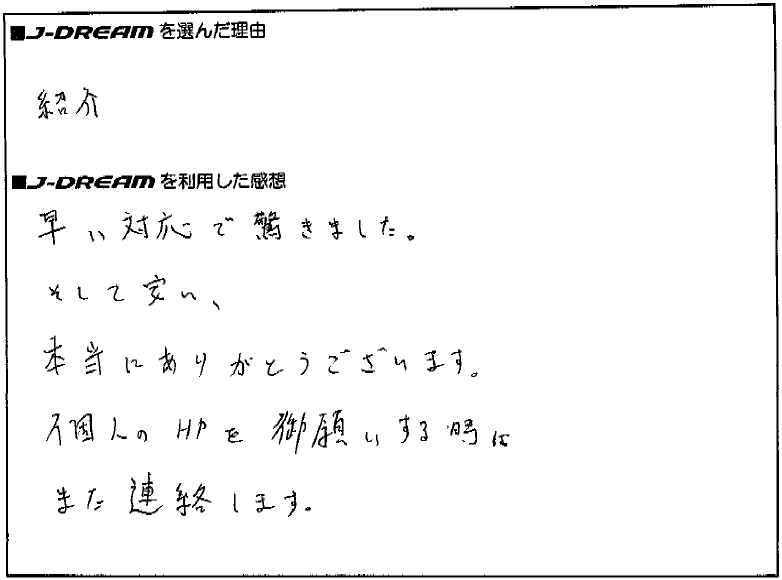 ■J-DREAMを選んだ理由
紹介
■J-DREAMを利用した感想
早い対応で驚きました。
そして安い、
本当にありがとうございます。
個人のHPを御願いする時は
また連絡します。